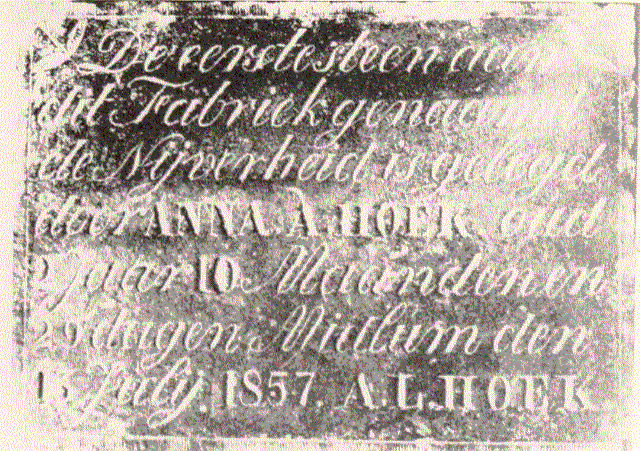 De eerste steen aan
dit Fabriek genaamd
de Nijverheid is gelegd
door ANNA. A. HOEK oud
jaar 10 Maanden en
dagen. Midlum den
July. 1857. A. L. HOEK